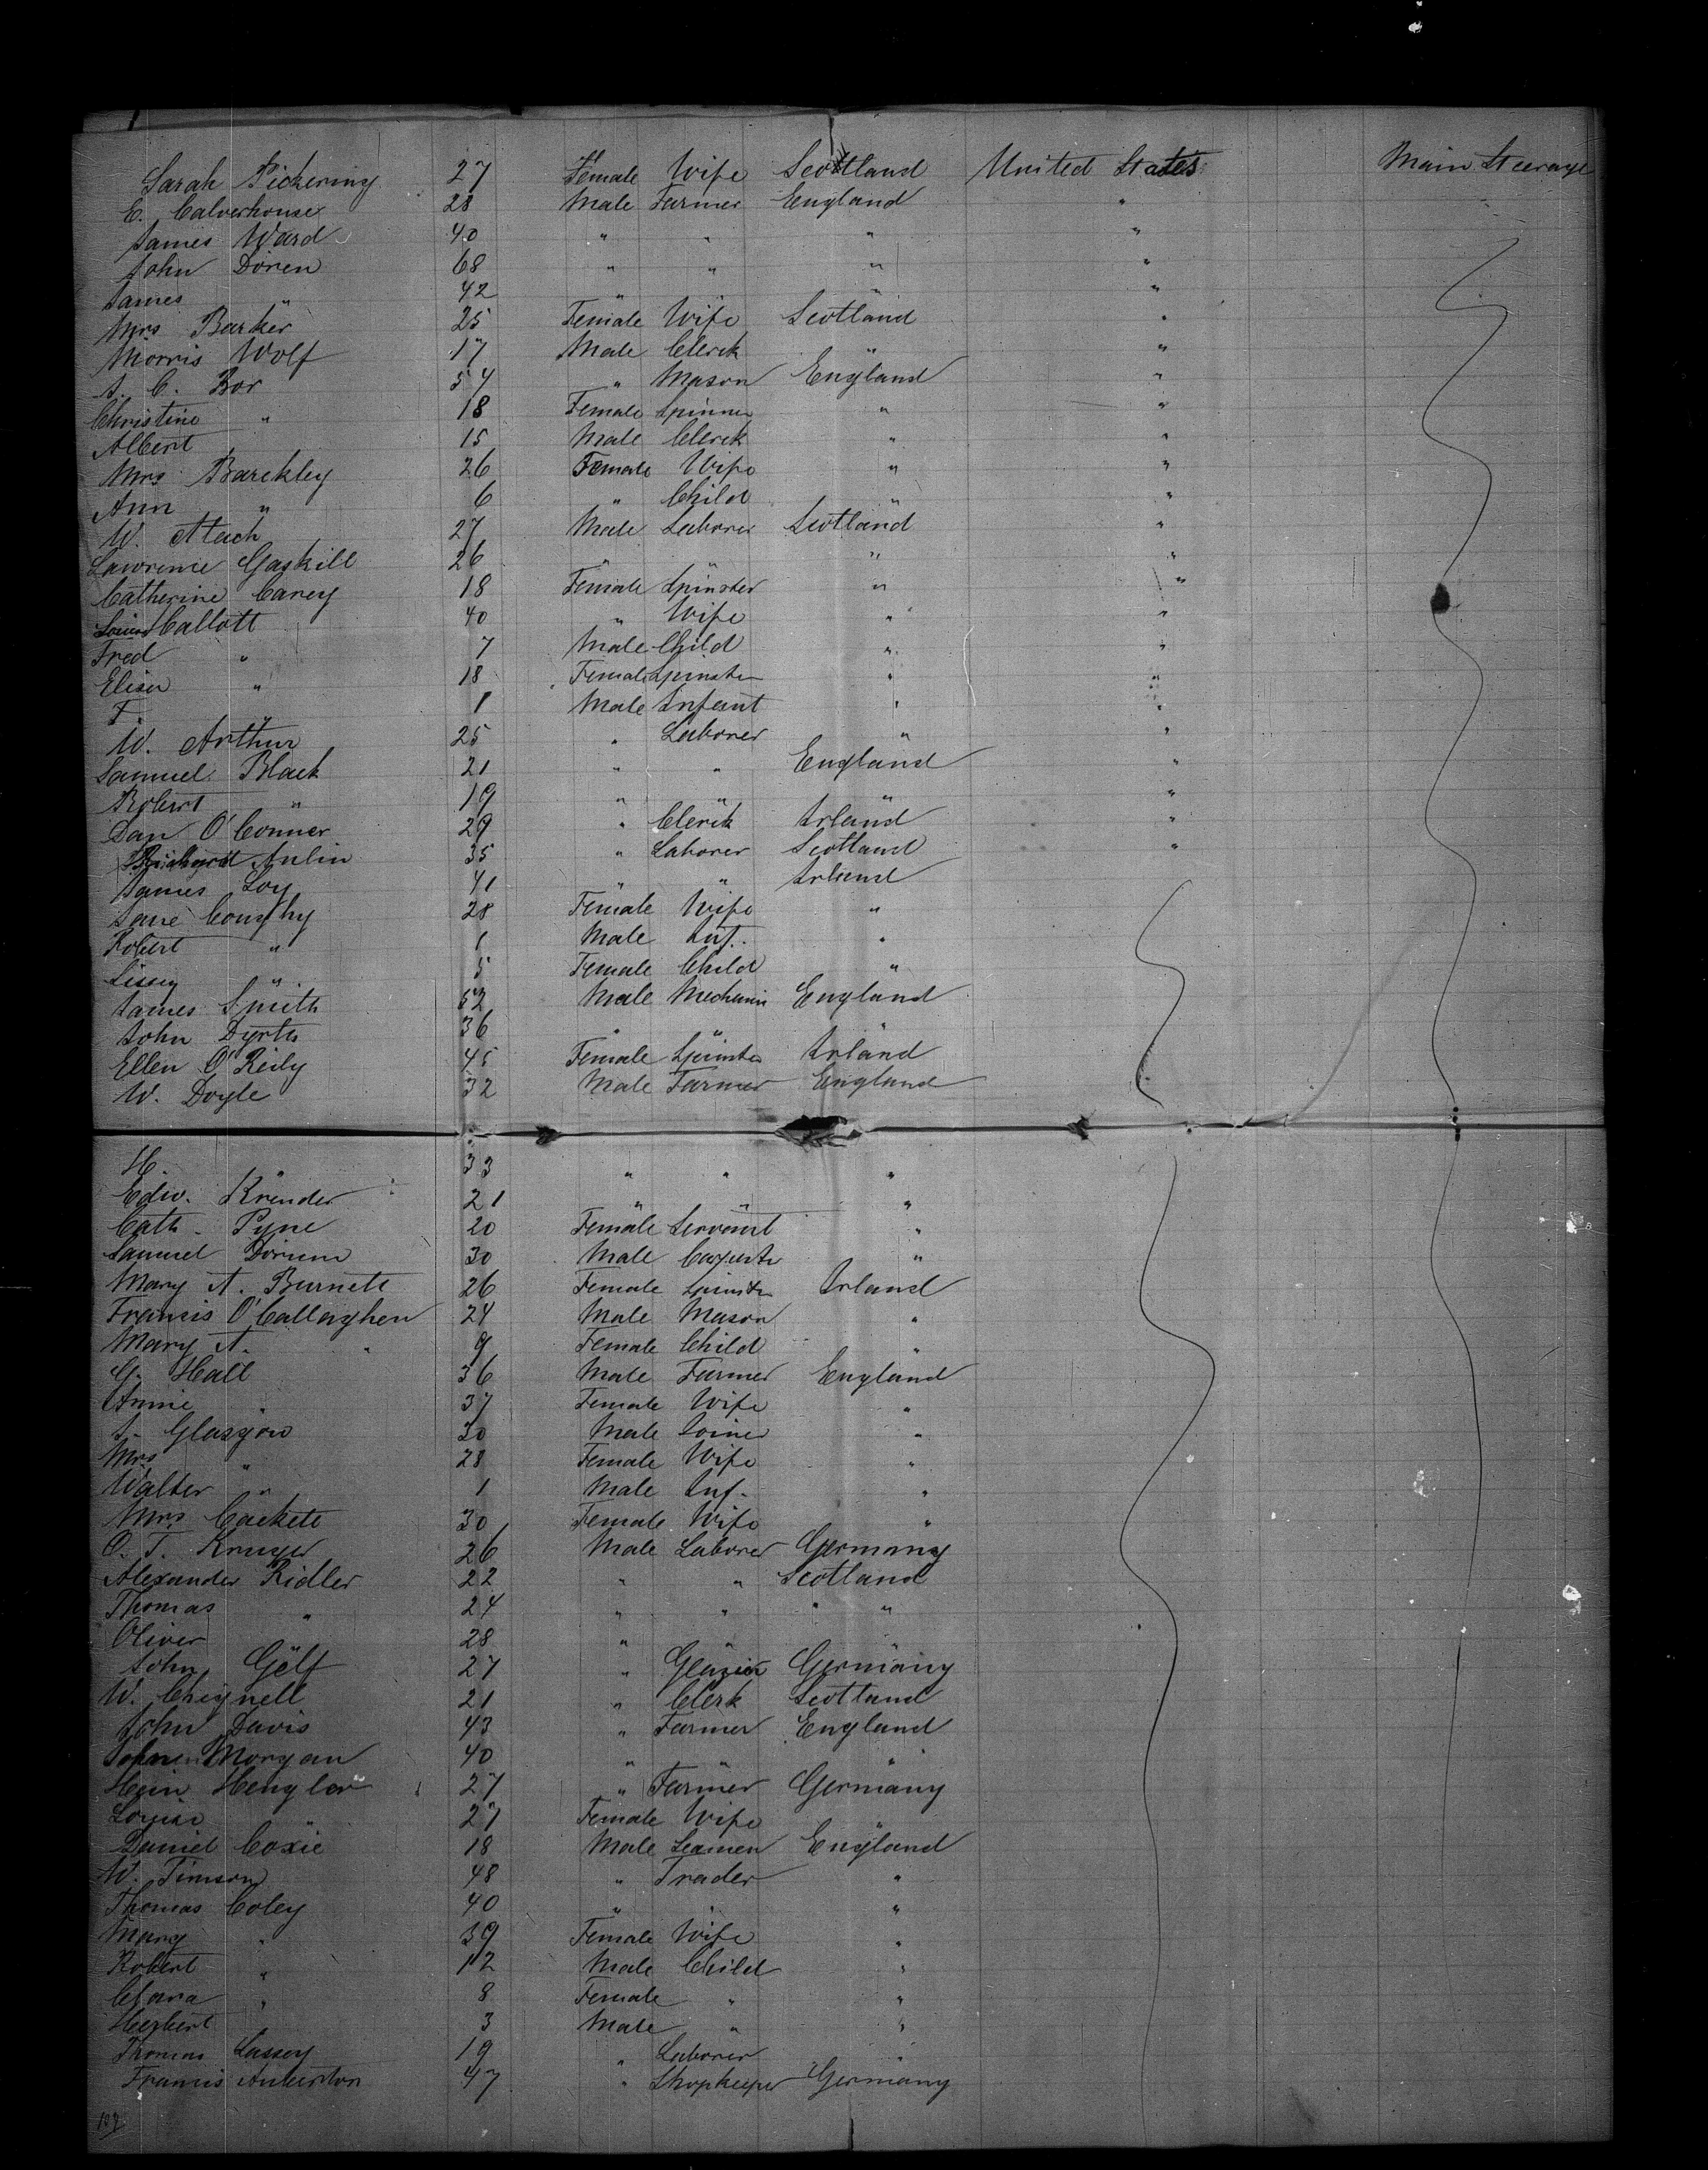 Sarah Pickering 27 Female Wife Scotland United States Main Steerage
E. Calverhouse 28 Male Farmer England "
James Ward 40 " " " "
John Doren 68 " " " "
James " 42 " " " "
Mrs Barker 25 Female Wife Scotland "
Morris Wolf 17 Male Clerk " "
A. C. Bor 54 " Mason England "
Christine " 18 Female Spinner " "
Albert 15 Male Clerk " "
Mrs Barckley 26 Female Wife " "
Ann " 6 " Child " "
W. 27 Male Laborer Scotland "
Lawrence Gaskill 26 " " " "
Catherine Carey 18 Female Spinster " "
Callott 40 " Wife " "
Fred " 7 Male Child " "
Elisa " 18 Female Spinster " "
F. " 1 Male Infant " "
W. Arthur 25 " Laborer " "
Samuel Black 21 " " England "
Robert " 19 " " " "
Dan O'Conner 29 " Clerk Irland "
35 " Laborer Scotland "
James Loy 41 " " Irland
Jane Coughy 28 Female Wife "
Robert " 1 Male Inf. "
Lissy " 5 Female Child "
James Smith 52 Male Mechanic England
John 36 " " "
Ellen O'Reily 45 Female Spinster Irland
W. Doyle 32 Male Farmer England
H. " 33 " " "
Edw. Krender 21 " " "
Cath. Pyne 20 Female Servant "
Samuel 30 Male Carpenter "
Mary A. Burnett 26 Female Spinster Irland
Francis O'Callaghen 24 Male Mason "
Mary A. " 9 Female Child "
G. Hall 36 Male Farmer England
Annie " 37 Female Wife "
J. Glasgow 30 Male Joiner "
Mrs " 28 Female Wife "
Walter " 1 Male Inf. "
Mrs Cackett 30 Female Wife "
O. T. Kruger 26 Male Laborer Germany
Alexander Ridler 22 " " Scotland
Thomas " 24 " " " "
Oliver 28 "
John Gelf 27 " Glazier Germany
W. Chignell 21 " Clerk Scotland
John Davis 43 " Farmer England
Morgan 40 " " "
Hein Hengler 27 " Farmer Germany
Louise " 27 Female Wife "
Daniel Coxie 18 Male Seamen England
W. Timson 48 " Trader "
Thomas Coley 40 " " "
Mary " 39 Female Wife "
Robert " 12 Male Child "
Clara " 8 Female " "
Herbert 3 Male " "
Thomas Lassey 19 " Laborer "
Francis 47 " Shopkeeper Germany